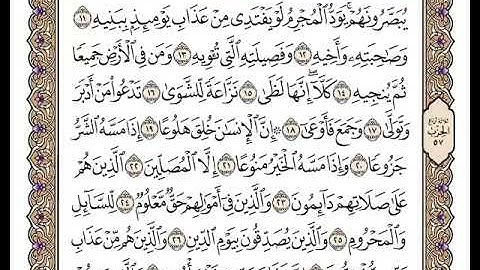 يُبَصَّرُونَهُمْ ۚ يَوَدُّ الْمُجْرِمُ لَوْ يَفْتَدِي مِنْ عَذَابِ يَوْمِئِذٍ بِبَنِيهِ ١١
وَصَاحِبَتِهِ وَأَخِيهِ ١٢ وَفَصِيلَتِهِ الَّتِي تُؤْوِيهِ ١٣ وَمَن فِي الْأَرْضِ جَمِيعًا
ثُمَّ يُنجِيهِ ١٤ كَلَّا ۖ إِنَّهَا لَظَىٰ ١٥ نَزَّاعَةً لِّلشَّوَىٰ ١٦ تَدْعُوا مَنْ أَدْبَرَ
وَتَوَلَّىٰ ١٧ وَجَمَعَ فَأَوْعَىٰ ١٨ ۞ إِنَّ الْإِنسَانَ خُلِقَ هَلُوعًا ١٩ إِذَا مَسَّهُ الشَّرُّ
جَزُوعًا ٢٠ وَإِذَا مَسَّهُ الْخَيْرُ مَنُوعًا ٢١ إِلَّا الْمُصَلِّينَ ٢٢ الَّذِينَ هُمْ
عَلَىٰ صَلَاتِهِمْ دَائِمُونَ ٢٣ وَالَّذِينَ فِي أَمْوَالِهِمْ حَقٌّ مَّعْلُومٌ ٢٤ لِّلسَّائِلِ
وَالْمَحْرُومِ ٢٥ وَالَّذِينَ يُصَدِّقُونَ بِيَوْمِ الدِّينِ ٢٦ وَالَّذِينَ هُم مِّنْ عَذَابِ
الحزب
٥٧